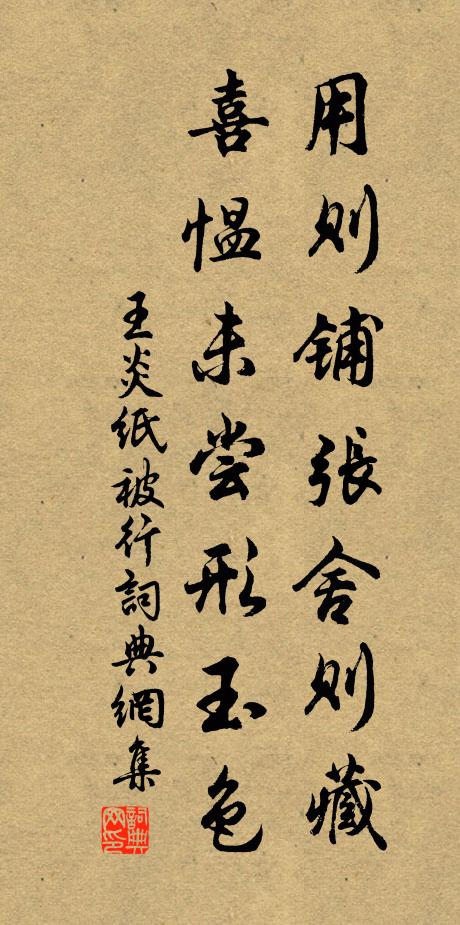 用则铺張舍则藏
喜愠未尝形玉色
王炎纸被行詞典網集
詞典网印